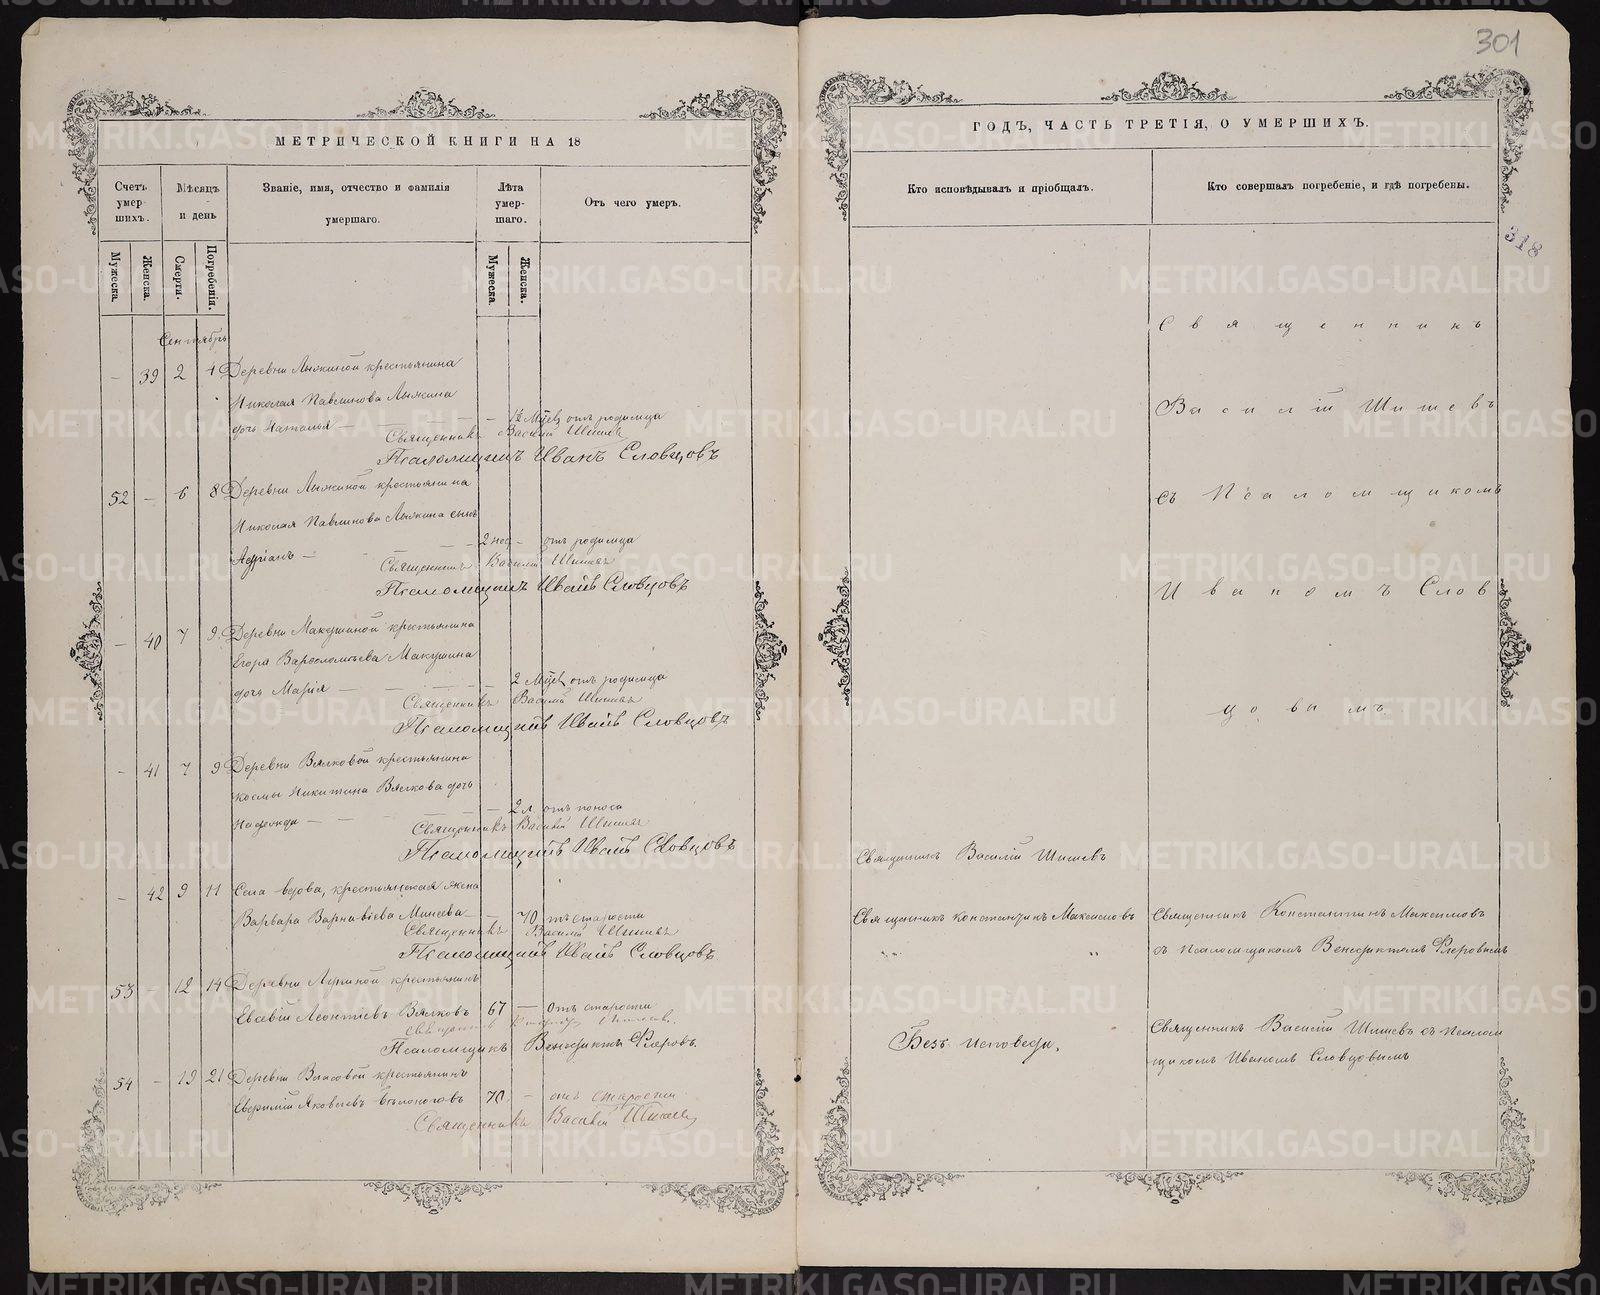 301
МЕТРИЧЕСКОЙ КНИГИ НА 18
Счетъ умер-
шихъ.
Мѣсяцъ
и день
Званіе, имя, отчество и фамилія
умершаго.
Лѣта
умер-
шаго.
Отъ чего умеръ.
Мужеска.
Женска.
Смерти.
Погребенія.
Мужеска.
Женска.
Сентябрь
— 39 2 4 Деревни Лыжиной крестьянина
Николая Павлинова Лыжина
дочь Наталья — — отъ родимца
Священникъ Василій Шишевъ
Псаломщикъ Иванъ Словцовъ
52 — 6 8 Деревни Лыжиной крестьянина
Николая Павлинова Лыжина сынъ
Адріанъ — 2 нед — отъ родимца
Священникъ Василій Шишевъ
Псаломщикъ Иванъ Словцовъ
— 40 7 9 Деревни Макушиной крестьянина
Егора Варѳоломѣева Макушина
дочь Марія — — 2 Мѣц. отъ родимца
Священникъ Василій Шишевъ
Псаломщикъ Иванъ Словцовъ
— 41 7 9 Деревни Вялковой крестьянина
Космы Никитина Вялкова дочь
— 2 л. отъ поноса
Священникъ Василій Шишевъ
Псаломщикъ Иванъ Словцовъ
— 42 9 11 Села вдова, крестьянская жена
Варвара Минеева — — 70 отъ старости
Священникъ Василій Шишевъ
Псаломщикъ Иванъ Словцовъ
53 — 12 14 Деревни крестьянинъ
Евсевій Леонтіевъ Вялковъ 67 — Отъ старости
Священникъ
Псаломщикъ Венедиктъ Флеровъ.
54 — 19 21 Деревни Власовой крестьянинъ
Яковлевъ Бѣлоноговъ 70 — отъ старости
Священникъ Василій Шишевъ
ГОДЪ, ЧАСТЬ ТРЕТІЯ, О УМЕРШИХЪ.
Кто исповѣдывалъ и пріобщалъ.
Кто совершалъ погребеніе, и гдѣ погребены.
318
Священникъ
Василій Шишевъ
съ Псаломщикомъ
Иваномъ Слов
цовымъ
Священникъ Василій Шишевъ
Священникъ Константинъ Максимовъ
Священникъ Константинъ Максимовъ
съ псаломщикомъ Венедиктомъ Флеровымъ
Безъ исповѣди.
Священникъ Василій Шишевъ съ псалом
щикомъ Иваномъ Словцовымъ
METRIKI.GASO-URAL.RU